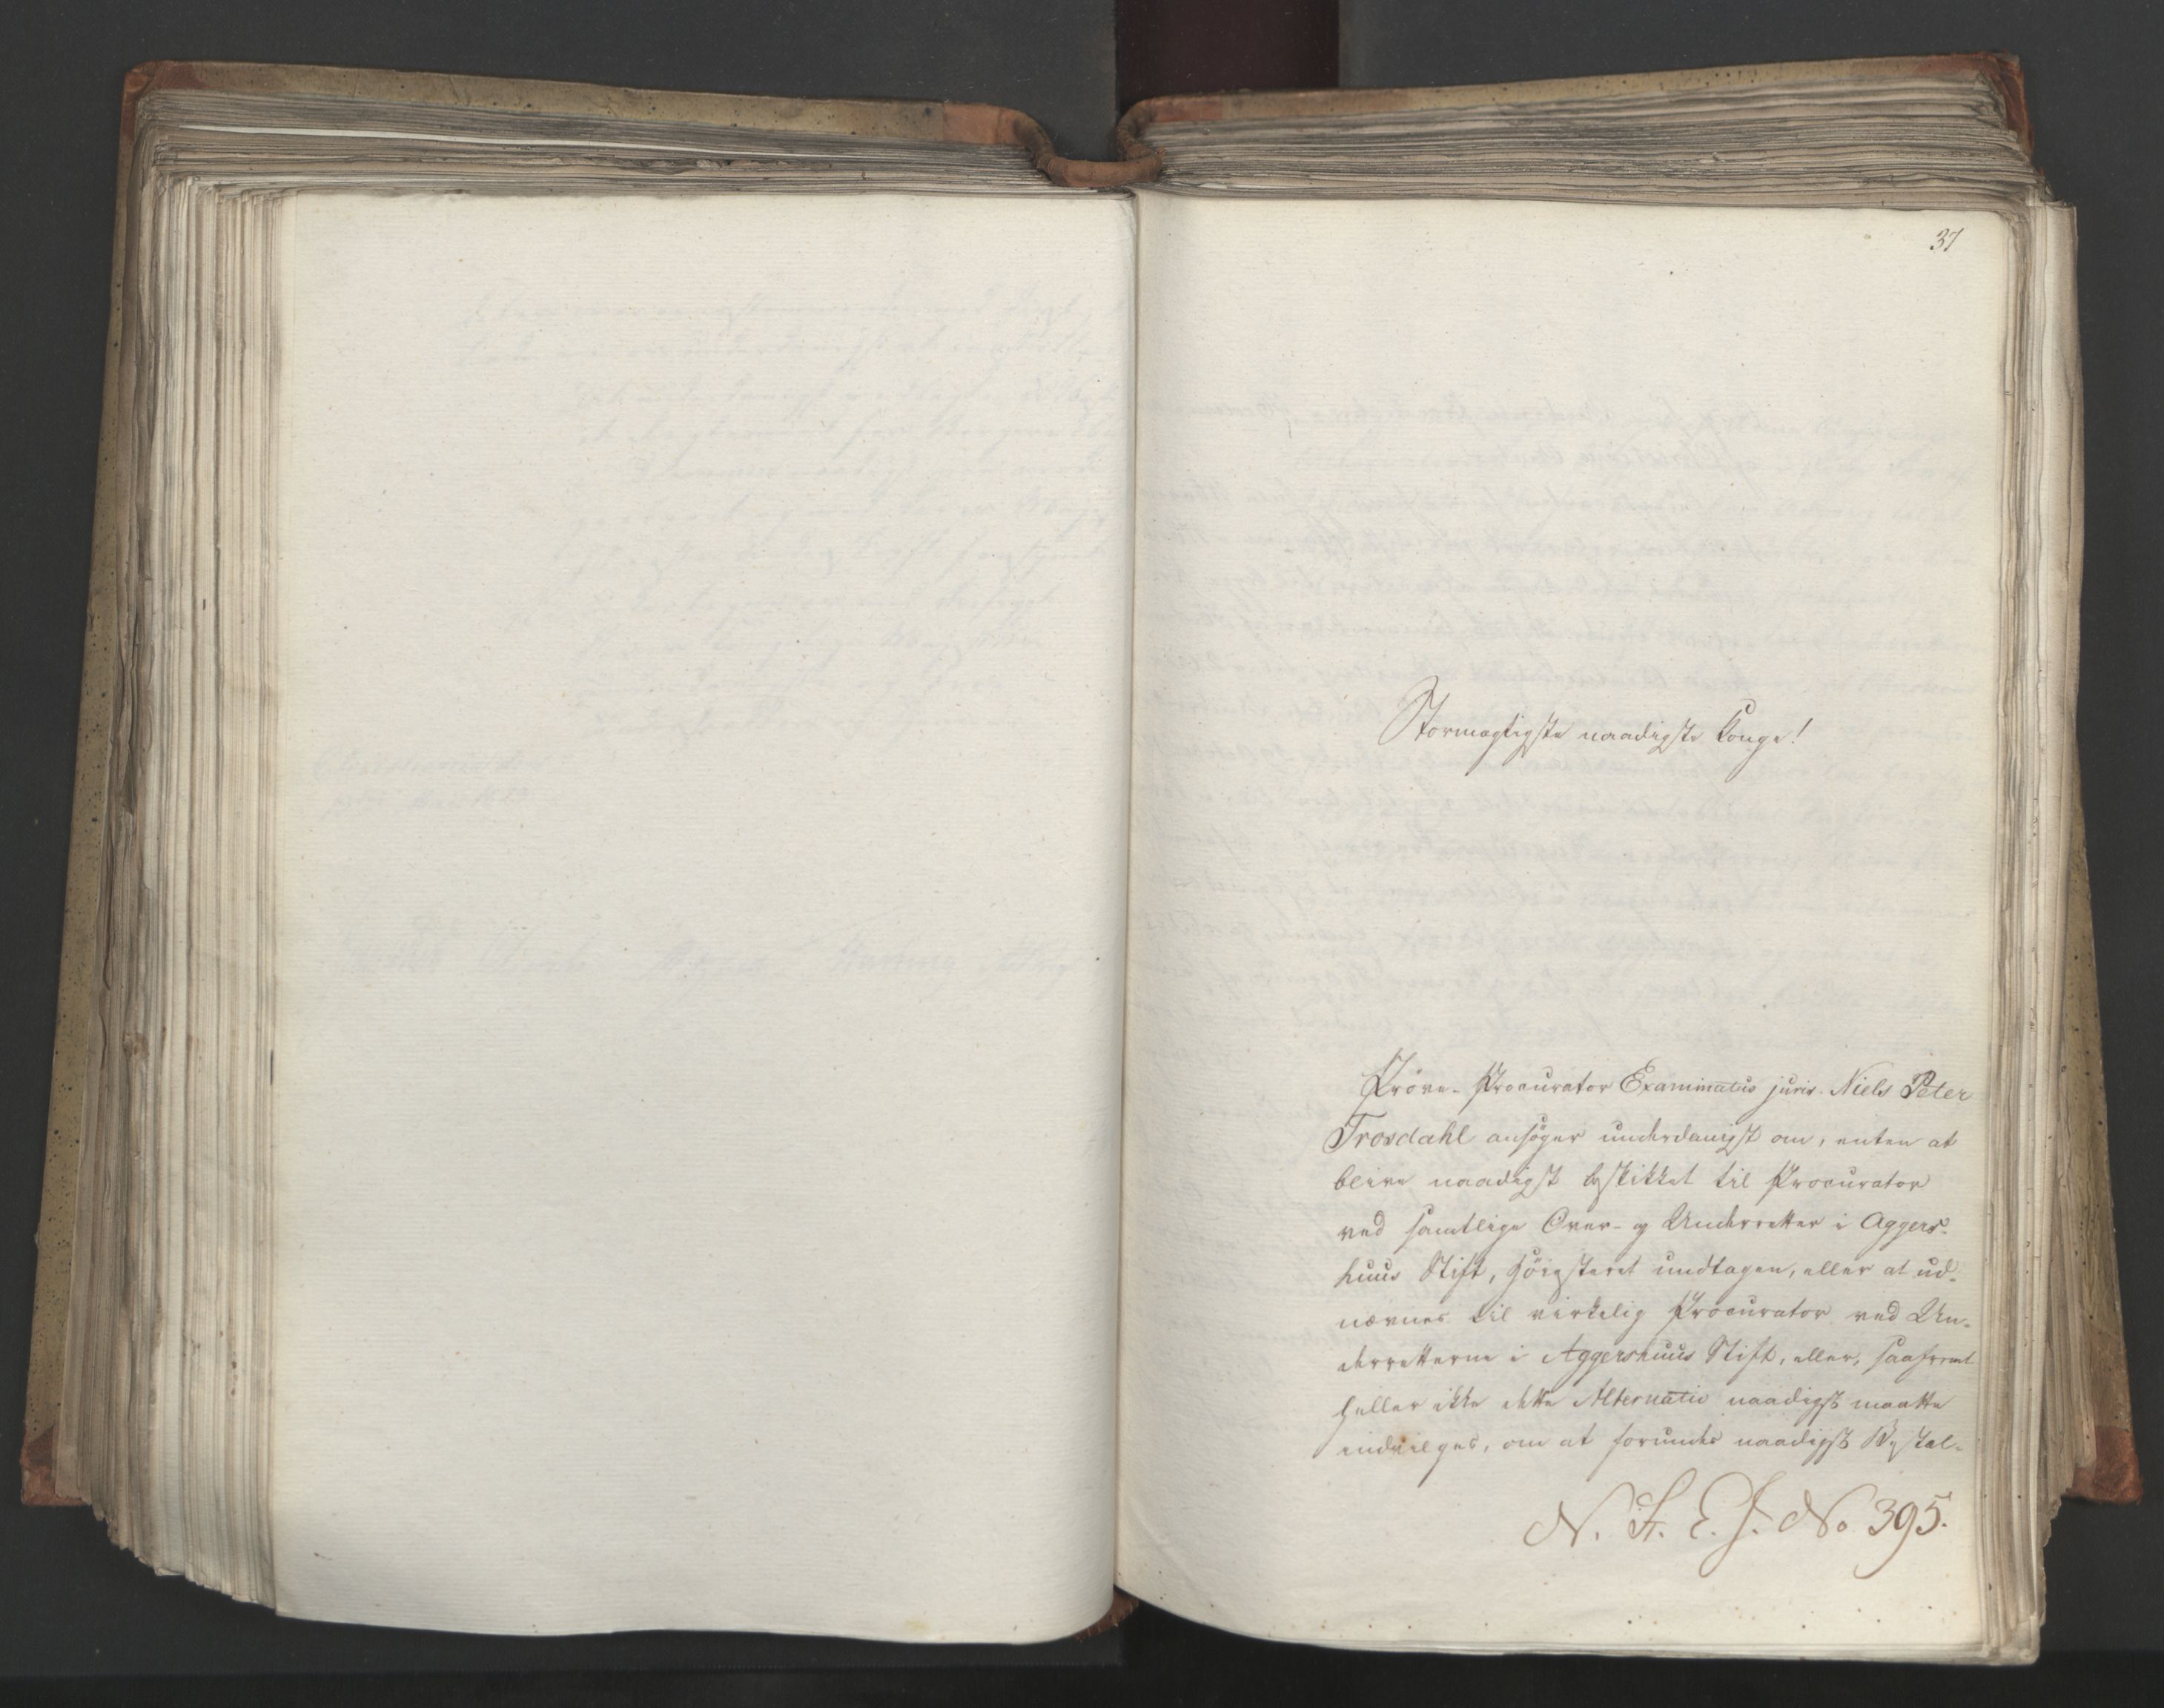 37
Stormægtigste naadigste Konge!
Prøve-Procurator Examinatus juris Niels Peter
Trosdahl ansøger underdanigst om, enten at
blive naadigst beskikket til Procurator
ved samtlige Over- og Underretter i Aggers-
huus Stift, Høiesteret undtagen, eller at ud-
nævnes til virkelig Procurator ved Un-
derretterne i Aggershuus Stift, eller, saafremt
heller ikke dette Alternativ naadigst maatte
indvilges, om at forundes naadigst Bestal-
N. F. E. J. No 395.